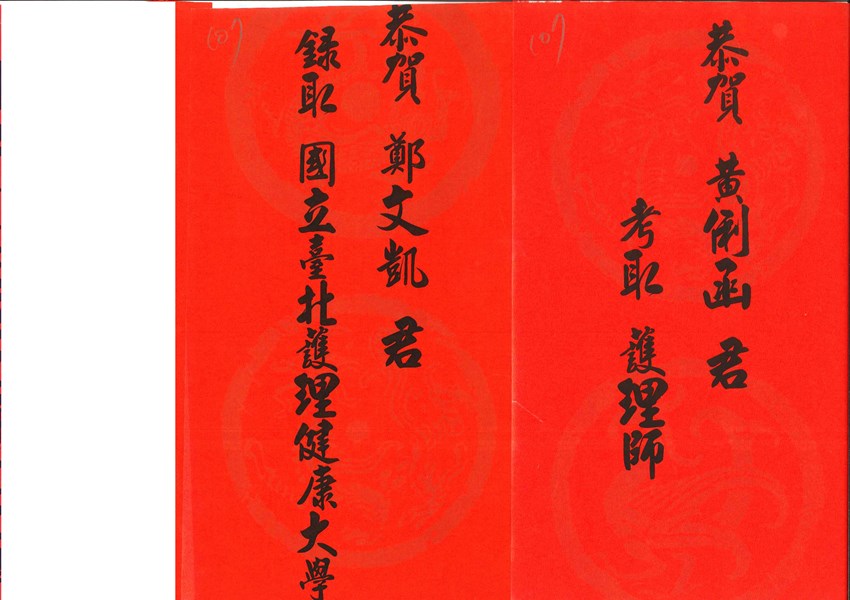 107
恭賀 黃俐函 君
考取 護理師
107
恭賀 鄭文凱 君
錄取 國立臺北護理健康大學